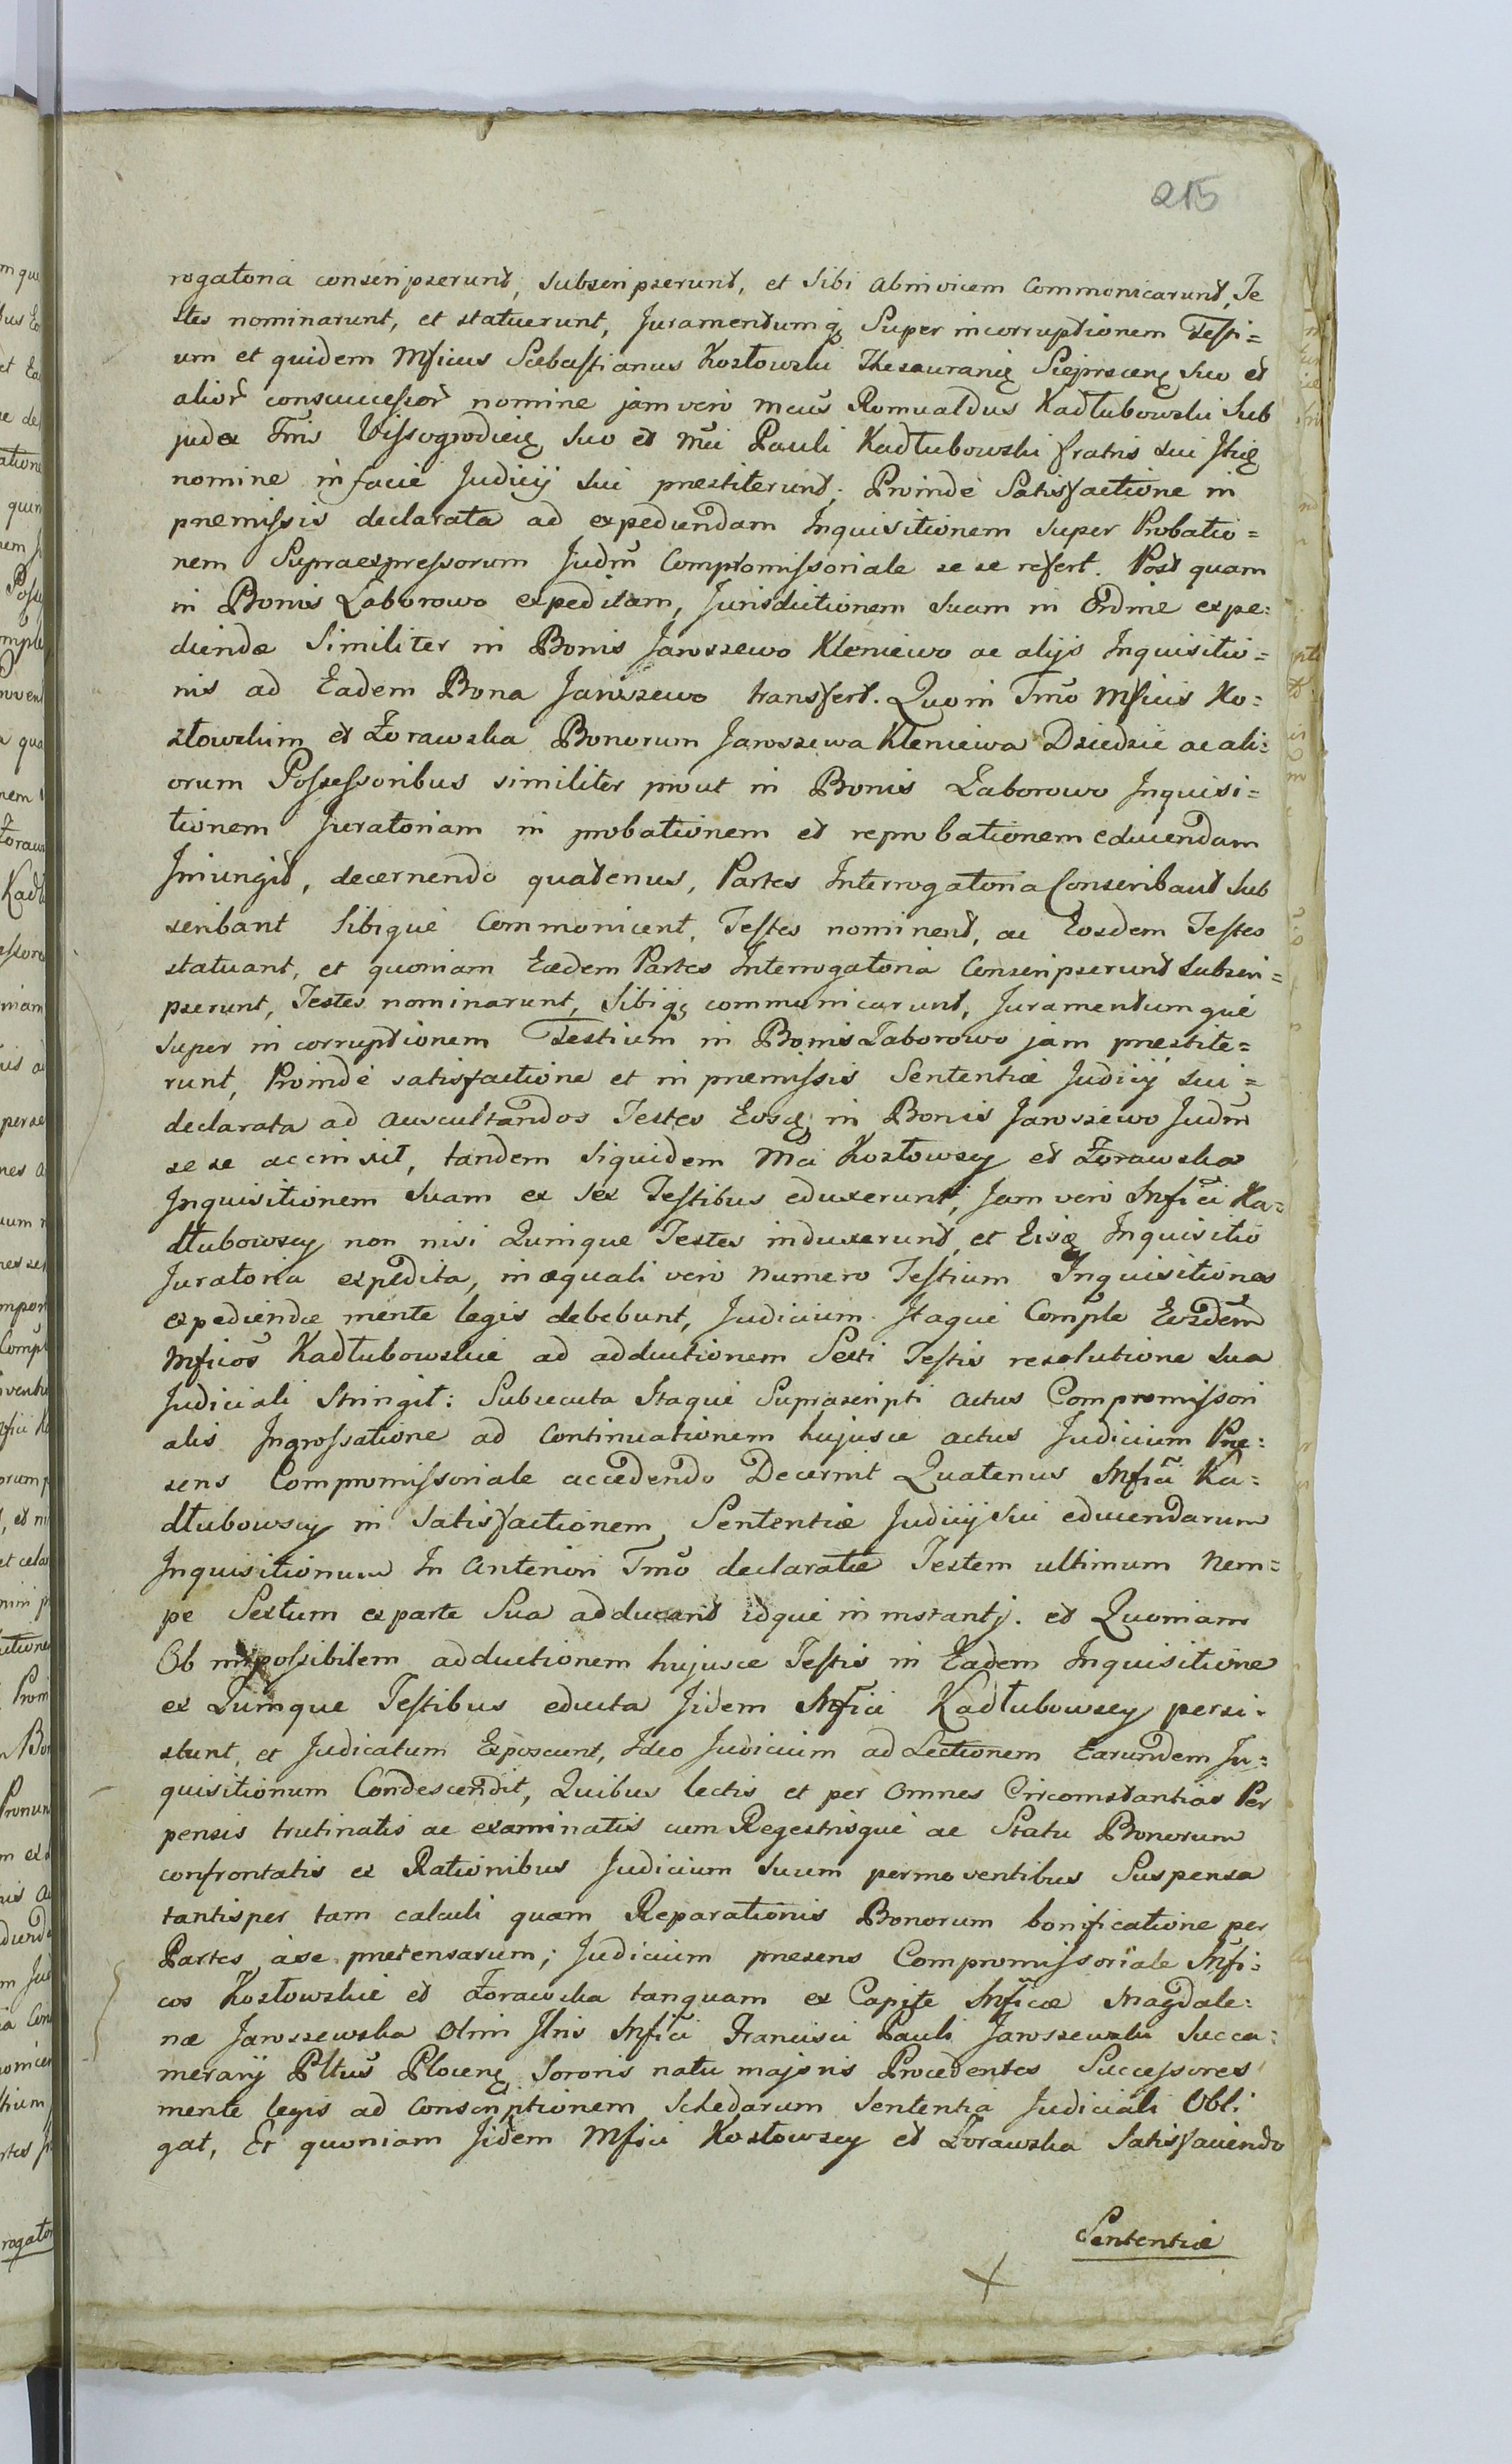 215
rogatoria conscripserunt, subscripserunt, et Sibi abinvicem Commonicarunt, Te
stes nominarunt, et statuerunt, Juramentumq; Super incorruptionem Testi=
um et quidem Mficus Sebastianus Kozłowski Thesaurarię Sieprscenę suo et
alior̃ consuccessor̃ nomine jam vero Mcus Romualdus Kadłubowski Sub
judex Tris Vissogrodieę suo et Mci Pauli Kadłubowski fratris sui
nomine in facie Judicij sui prestiterunt; Proinde Satisfactione in
premissis declarata ad expediendam Inquisitionem super Probatio=
nem Supraexpressorum Judm̃ Compromissoriale se se refert. Post quam
in Bonis Zaborowo expeditam, Jurisdictionem suam in Ordine expe=
diendæ Similiter in Bonis Jaroszewo Kleniewo ac alijs Inquisitio=
nis ad Eadem Bona Jaroszewo transfert. Quo in Tmo Mficis Ko=
złowskim et Żorawska Bonorum Jaroszewa Kleniewa Dziedzic ac ali=
orum Possessoribus similiter prout in Bonis Zaborowo Inquisi=
tionem Juratoriam in probationem et reprobationem educendam
Iniungit, decernendo quatenus, Partes Interrogatoria Conscribant Sub
scribant Sibique Commonicent, Testes nominent, ac Eosdem Testes
statuant, et quoniam Eædem Partes Interrogatoria Conscripserunt Subscri=
pserunt, Testes nominarunt, Sibiq; communicarunt, Juramentumque
Super incorruptionem Testium in Bonis Zaborowo jam prestite=
runt, Proinde satisfactione et in premissis Sententiæ Judicij sui=
declarata ad Auscultandos Testes Eosq; in Bonis Jaroszewo Judm̃
se se accinxit, tandem siquidem Mci Kozłowscy et Żorawska
Inquisitionem suam ex sex Testibus eduxerunt, Jam vero Mfici Ka=
dłubowscy non nisi Quinque Testes induxerunt, et Eisq Inquisitio
Juratoria expedita, in æquali vero numero Testium Inquisitiones
expediendæ mente legis debebunt, Judicium Itaque Comple Eosdem
Mficos Kadłubowskie ad adductionem Sexti Testis resolutione sua
Judiciali Stringit: Subsecuta Itaque Suprascripti actus Compromissori
alis Ingrossatione ad Continuationem hujusce actus Judicium Pre=
sens Compromissoriale accedendo Decernit Quatenus Mfici Ka=
dłubowscy in Satisfactionem Sententiæ Judicij sui educendarum
Inquisitionum In anteriori Tmo declaratæ Testem ultimum Nem=
pe Sextum ex parte Sua adducant idque in instantj. et Quoniam
Ob impossibilem adductionem hujusce Testis in Eadem Inquisitione
ex Quinque Testibus educta Jidem Mfici Kadłubowscy persi=
stunt, et Judicatum Exposcunt, Ideo Judicium ad Lectionem Earundem In=
quisitionum Condescendit, Quibus lectis et per omnes Circomstantias Per
pensis trutinatis ac examinatis cum Regestrisque ac Statu Bonorum
confrontatis ex Rationibus Judicium suum permoventibus Suspensa
tantisper tam calculi quam Reparationis Bonorum bonificatione per
Partes à se pretensarum; Judicium presens Compromissoriale Mfi=
cos Kozłowskie et Żorawska tanquam ex Capite Mficæ Magdale=
næ Jaroszewska Olim Jlris Mfici Francisci Pauli Jaroszewski Succa=
merarij Pltus Plocenę Sororis natu majoris Procedentes Successores
mente legis ad Conscriptionem Schedarum Sententia Judiciali Obli
gat, Et quoniam Jidem Mfici Kozłowscy et Żorawska Satisfaciendo
Sententiæ